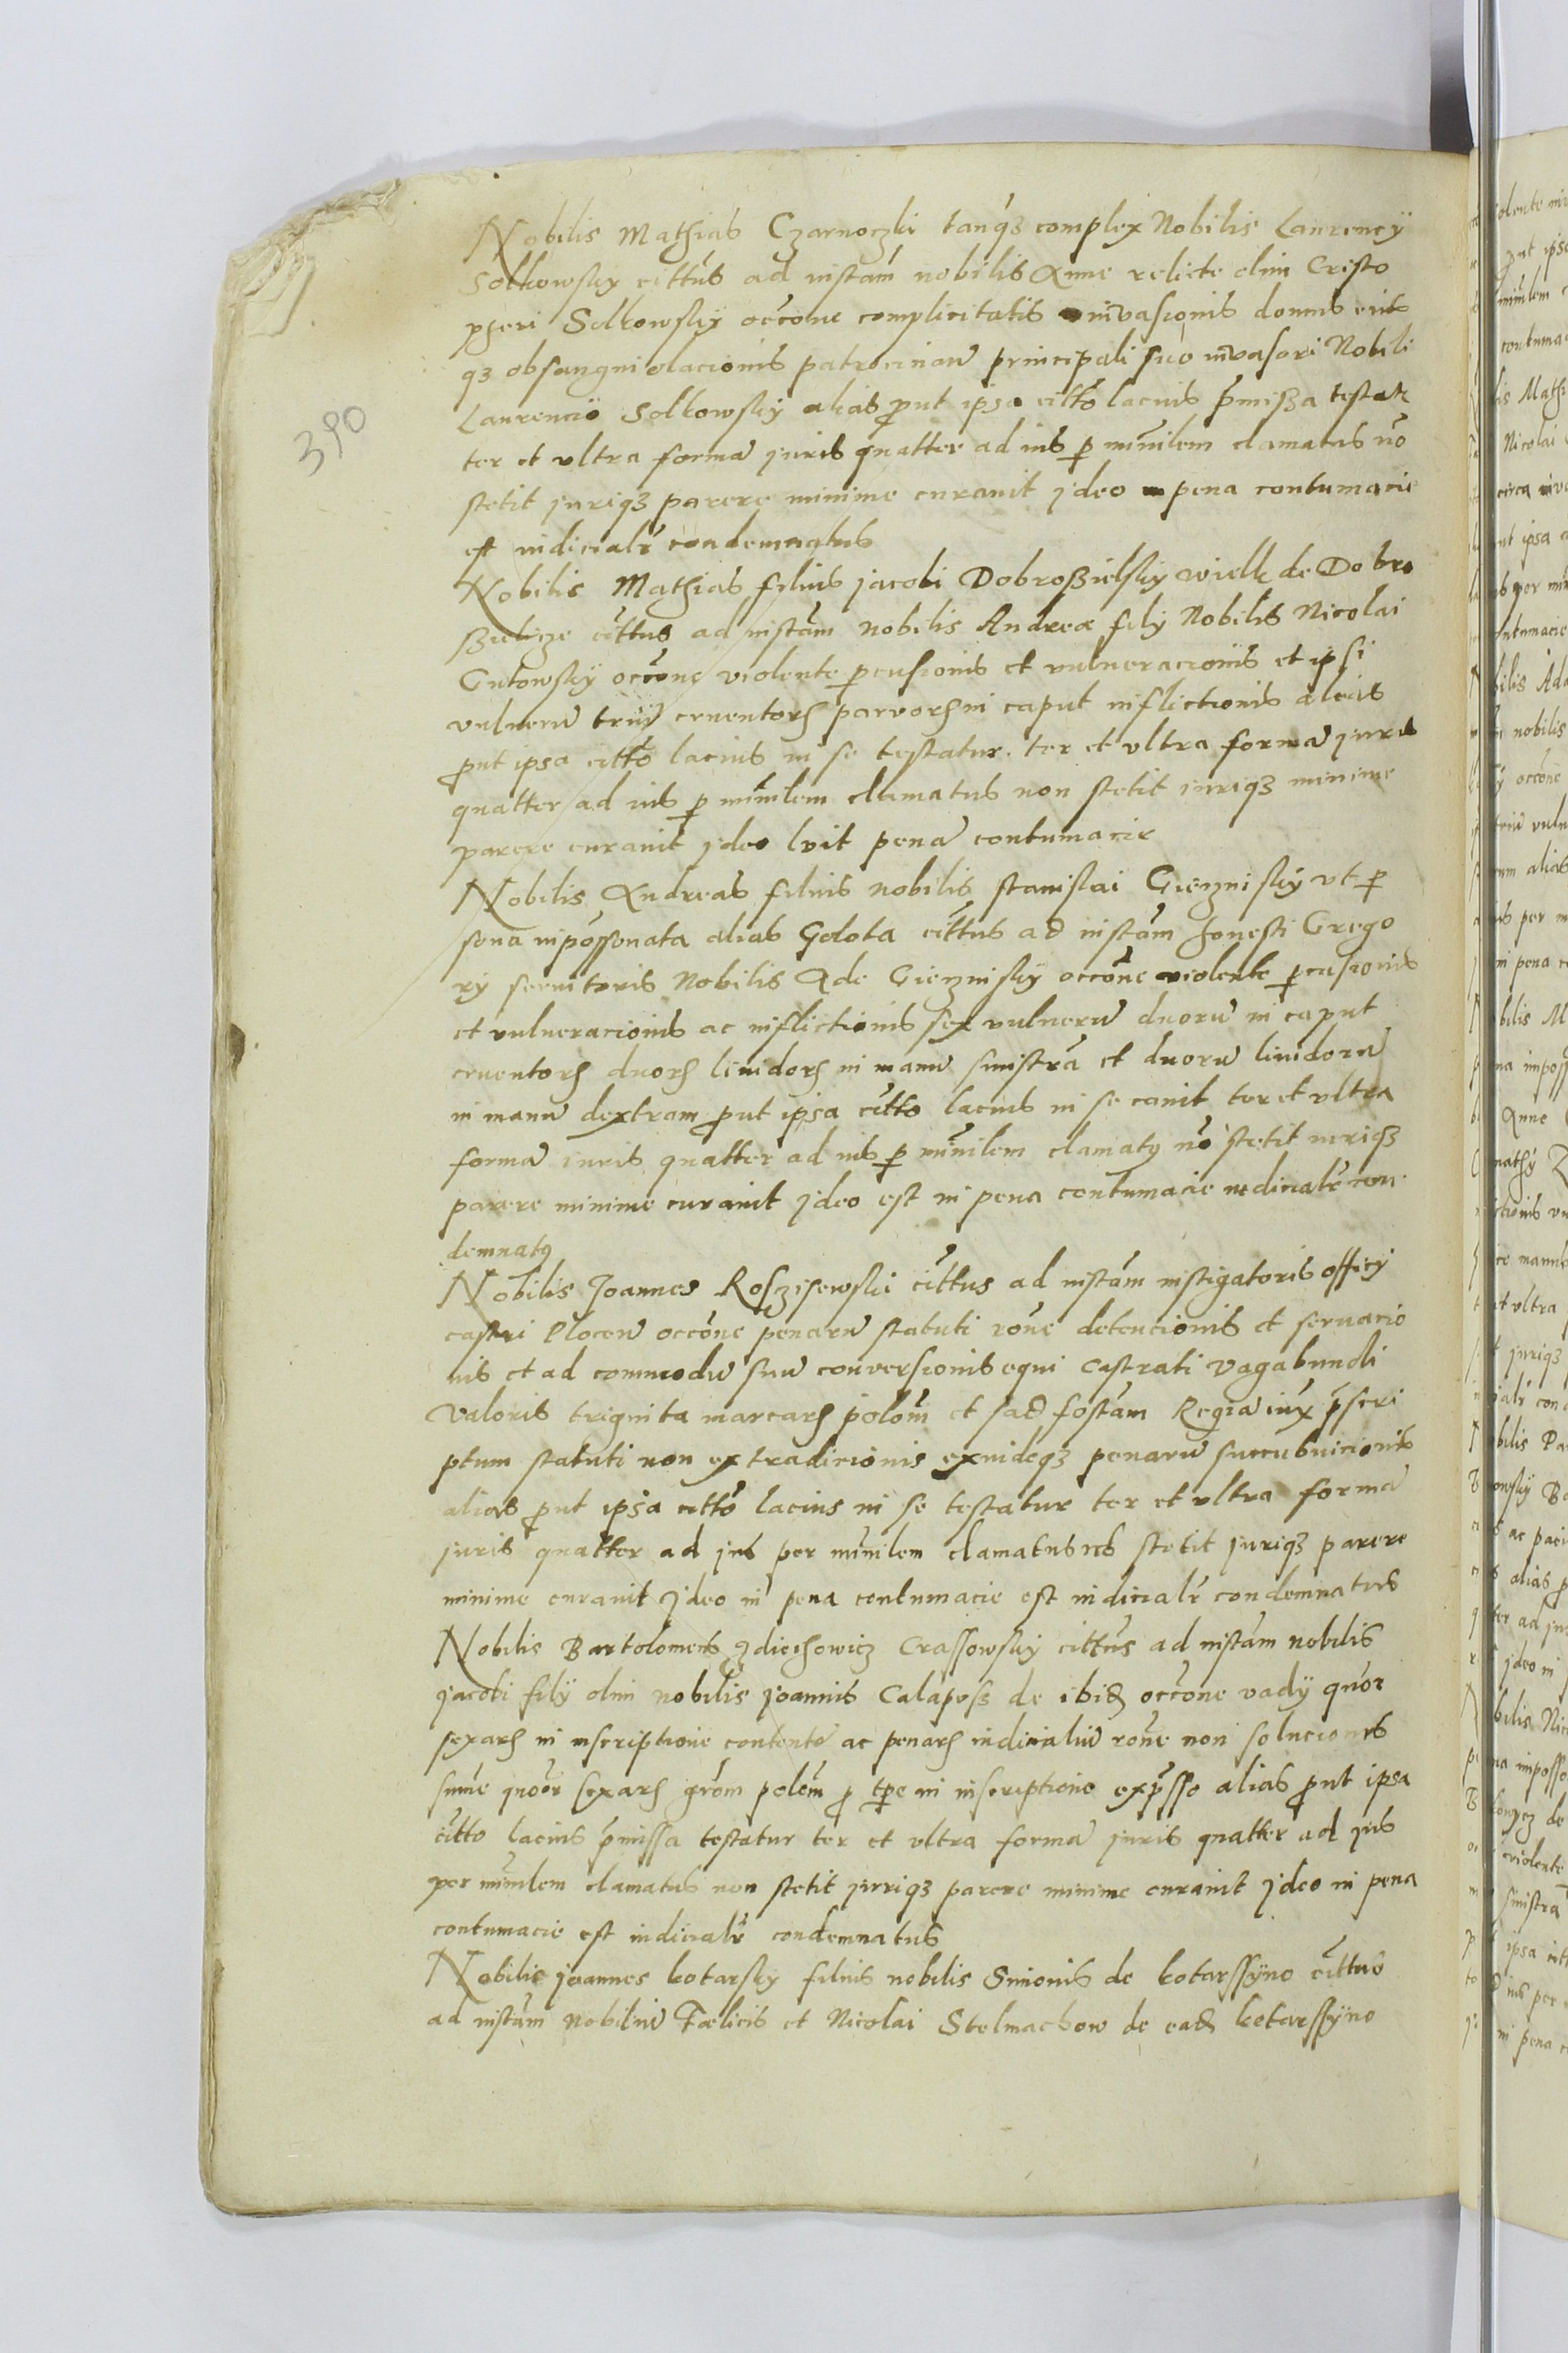 390
Nobilis Mathias Czarnoczki tanq̃ʒ complex Nobilis Laurency
Solkowsky cittus ad instam nobilis Anne relicte olim Cristo
pheri Solkowsky occone complicitatis invasionis domus eius
qʒ obsangniolacionis patrocinan principali suo invasori Nobili
Laurencio Solkowsky alias put ipsa citto lacius pmissa testatr
ter et vltra forma juris quatter ad ius p minilem clamatus no
stetit juriqʒ parere minime curauit jdeo pena contumacie
est iudicialr condemnatus
Nobilis Mathias filius jacobi Dobroßielsky wielk de Dobro
ßielicze cittus ad instam nobilis Andreæ fily Nobilis Nicolai
Gutowsky occone violente pcusionis et vulneracionis et ipsi
vulneru triu cruentorum parvorum in caput inflictionis alias
put ipsa citto lacius in se testatur ter et vltra forma juris
quatter ad ius p minilem clamatus non stetit iuriqʒ minime
parere curauit jdeo luit pena contumacie
Nobilis Andreas filius nobilis stanislai Giezinsky vt p
sona inpossonata alias Golota cittus ad instam honesti Grego
ry seruitoris Nobilis Ade Giezinsky occone violente pcusionis
et vulneracionis ac inflictionis sex vulneru duoru in caput
cruentorum duorum liuidorum in manu sinistra et duoru liuidoru
in manu dextram put ipsa citto lacius in se canit ter et vltra
forma iuris quatter ad ius p minilem clamatus no stetit iuriqʒ
parere minime curauit jdeo est in pena contumacie iudicialr con
demnatus
Nobilis Joannes Roszisewski cittus ad instam instigatoris officy
castri Plocen occone penaru statuti rone detencionis et seruacio
nis et ad commodu suu conversionis equi castrati vagabundi
valoris triginta marcarum polom et sad fostam Regia iux pscri
ptum statuti non extradicionis exindeqʒ penaru succubuicionis
alias put ipsa citto lacius in se testatur ter et vltra forma
juris quatter ad jus per minilem clamatus no stetit juriqʒ parere
minime curauit jdeo in pena contumacie est iudicialr condemnatus
Nobilis Bartolomeus zdiechowicz Crassowsky cittus ad instam nobilis
jacobi fily olim nobilis joannis Calaposs de ibid occone vady quor
sexarum in inscriptione contente ac penarum iudicialiu rone non solucionis
sume quor sexarum grom polom p tpe in inscriptione expsso alias put ipsa
citto lacius pmissa testatur ter et vltra forma juris quatter ad jus
per minilem clamatus non stetit juriqʒ parere minime curauit jdeo in pena
contumacie est iudicialr condemnatus
Nobilis joannes kotarsky filius nobilis Simonis de kotarssyno cittus
ad instam nobiliu Fœlicis et Nicolai Stelmachow de ead kotarssyno